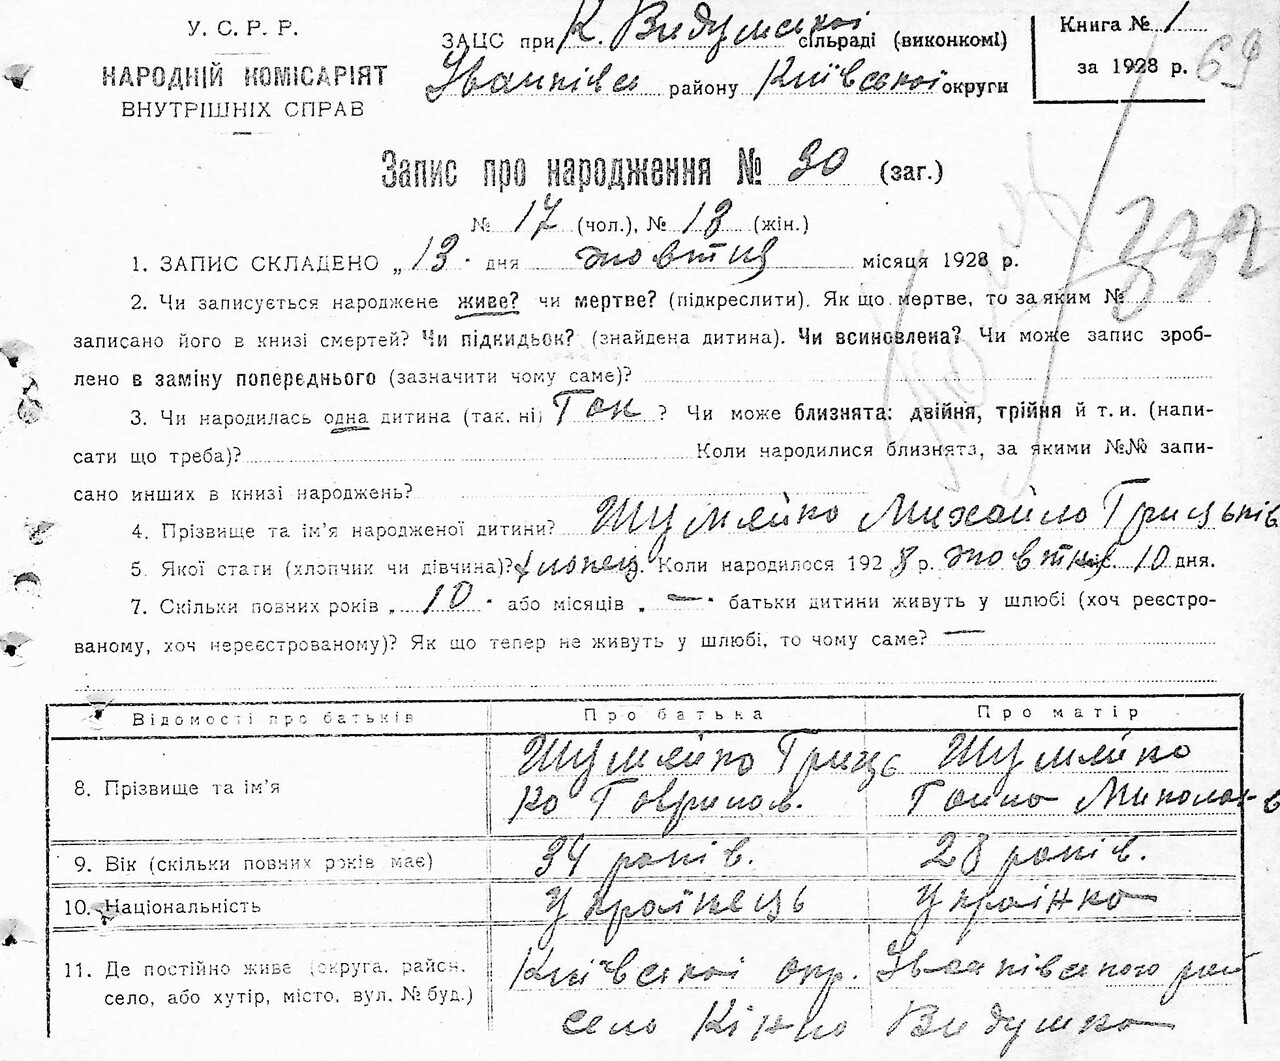 У. С. Р. Р.
НАРОДНІЙ КОМІСАРІЯТ
ВНУТРІШНІХ СПРАВ
ЗАЦС при К. Видумській сільраді (виконкомі)
Іванківсь району Київської округи
Книга № 1
за 1928 р. 69
Запис про народження № 30 (заг.)
№ 17 (чол.), № 13 (жін.)
332
1. ЗАПИС СКЛАДЕНО „13" дня жовтня місяця 1928 р.
2. Чи записується народжене живе? чи мертве? (підкреслити). Як що мертве, то за яким №
записано його в книзі смертей? Чи підкидьок? (знайдена дитина). Чи всиновлена? Чи може запис зроб-
лено в заміку попереднього (зазначити чому саме)?
3. Чи народилась одна дитина (так, ні) Так ? Чи може близнята: двійня, трійня й т. и. (напи-
сати що треба)? Коли народилися близнята, за якими №№ запи-
сано инших в книзі народжень?
4. Прізвище та ім'я народженої дитини? Шумейко Михайло Грицьків
5. Якої стати (хлопчик чи дівчина)? хлопец. Коли народилося 1928 р. жовтня 10 дня.
7. Скільки повних років „ 10 " або місяців „ — " батьки дитини живуть у шлюбі (хоч реєстро-
ваному, хоч нереєстрованому)? Як що тепер не живуть у шлюбі, то чому саме? —
Відомості про батьків Про батька Про матір
8. Прізвище та ім'я Шумейко Грицько Гаврилов. Шумейко Ганна Миколаїв
9. Вік (скільки повних років має) 34 років. 28 років.
10. Національність Українець Українка
11. Де постійно живе (округа, район, Київської окр. Іванківського рай
село, або хутір, місто, вул. № буд.) село Кінна Видумка